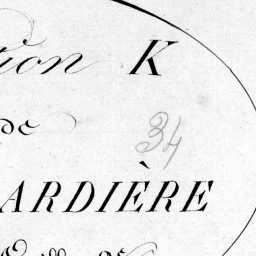 ion K
de
34
ARDIÈRE